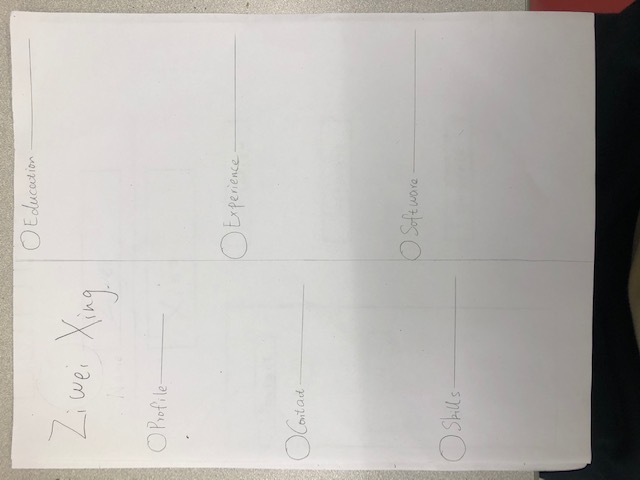 Ziwei Xing
Profile
Contact
Skills
Education
Experience
Software